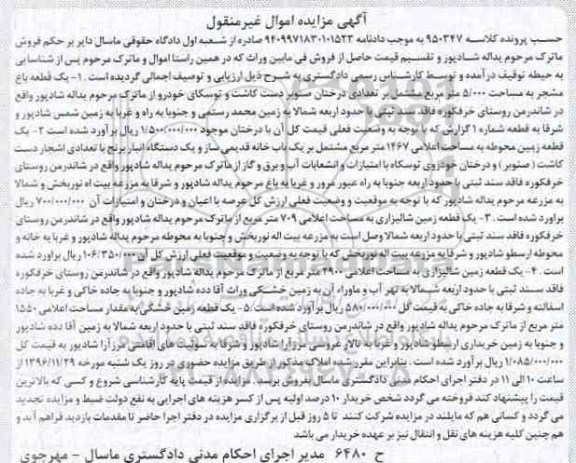 آگهی مزایده اموال غیرمنقول
حسب پرونده کلاسه ۹۵۰۳۴۷ به موجب دادنامه ۹۴۰۹۹۷۱۸۳۰۱۰۱۵۲۳ صادره از شعبه اول دادگاه حقوقی ماسال دایر بر حکم فروش
ماترک مرحوم یداله شادپور و تقسیم قیمت حاصل از فروش فی مابین وراث که در همین راستا اموال و ماترک مرحوم پس از شناسایی
به حیطه توقیف درآمده و توسط کارشناس رسمی دادگستری به شرح ذیل ارزیابی و توصیف اجمالی گردیده است . ۱- یک قطعه باغ
مشجر به مساحت ۵/۰۰۰ متر مربع مشتمل بر تعدادی درختان صنوبر دست کاشت و توسکای خودرو از ماترک مرحوم یداله شادپور واقع
در شاندرمن روستای خرفکوره فاقد سند ثبتی با حدود اربعه شمالا به زمین محمد رستمی و جنوبا به راه و غربا به زمین شمس شادپور و
شرقا به قطعه شماره ۱ گزارش که با توجه به وضعیت فعلی قیمت کل آن با درختان موجود ۱/۵۰۰/۰۰۰/۰۰۰ ریال برآورد شده است ۲- یک
قطعه زمین محوطه به مساحت اعلامی ۱۴۶۷ متر مربع مشتمل بر یک باب خانه قدیمی ساز و یک دستگاه انبار برنج با تعدادی اشجار دست
کاشت ( صنوبر ) و درختان خودروی توسکاه با امتیازات و انشعابات آب و برق و گاز از ماترک مرحوم یداله شادپور واقع در شاندرمن روستای
خرفکوره فاقد سند ثبتی با حدود اربعه جنوبا به راه عبور مرور و غربا به باغ مرحوم یداله شادپور و شرقا به مزرعه بیت اه نوربخش و شمالا
به مزرعه مرحوم یداله شادپور که با توجه به موقعیت و وضعیت فعلی ارزش کل عرصه با اعیان و درختان و امتیازات آن ۷۰۰/۰۰۰/۰۰۰ ریال
برآورد شده است . ۳- یک قطعه زمین شالیزاری به مساحت اعلامی ۷۰۹ متر مربع از ماترک مرحوم یداله شادپور واقع در شاندرمن روستای
خرفکوره فاقد سند ثبتی با حدود اربعه شمالا وصل است به مزرعه بیت اله نوربخش و جنوبا به محوطه مرحوم یداله شادپور و غربا به خانه و
محوطه ارسطو شادپور و شرقا به مزرعه بیت اله نوربخش که با توجه به وضعیت و موقعیت فعلی ارزش کل آن ۱۰۶/۳۵۰/۰۰۰ ریال برآورد شده
است . ۴- یک قطعه زمین شالیزاری به مساحت اعلامی ۲۹۰۰ متر مربع از ماترک مرحوم یداله شادپور واقع در شاندرمن روستای خرفکوره
فاقد سند ثبتی با حدود اربعه شمالا به نهر آب و ماوراء آن به زمین خشکی وراث آقا دده شادپور و جنوبا به جاده خاکی و غربا به جاده
آسفالته و شرقا به جاده خاکی به قیمت کل ۵۸۰/۰۰۰/۰۰۰ ریال برآورد شده است . ۵- یک قطعه زمین خشگی به مقدار مساحت اعلامی ۱۵۵۰
متر مربع از ماترک مرحوم یداله شادپور واقع در شاندرمن روستای خرفکوره فاقد سند ثبتی با حدود اربعه شمالا به زمین آقا دده شادپور
و جنوبا به زمین خریداری ارسطو شادپور و غربا به تالار عروسی زرآرا شادپور و شرقا به سوئیت های اقامتی زرآرا شادپور به قیمت کل
۱/۰۸۵/۰۰۰/۰۰۰ ریال برآورد شده است . بنابراین مقرر شده املاک مذکور از طریق مزایده حضوری در روز یک شنبه مورخه ۱۳۹۶/۱۱/۲۹ از
ساعت ۱۰ الی ۱۱ در دفتر اجرای احکام مدنی دادگستری ماسال بفروش برسد. مزایده از قیمت پایه کارشناسی شروع و کسی که بالاترین
قیمت را پیشنهاد کند فروخته می گردد شخص خریدار ۱۰ درصد اولیه پس از کسر هزینه های اجرایی به نفع دولت ضبط و مزایده تجدید
می گردد و کسانی هم که مایلند در مزایده شرکت کنند تا ۵ روز قبل از برگزاری مزایده در دفتر اجرا حاضر تا مقدمات بازدید فراهم آید و
هم چنین کلیه هزینه های نقل و انتقال نیز بر عهده خریدار می باشد
ح ۶۴۸۰ مدیر اجرای احکام مدنی دادگستری ماسال - مهرجوی